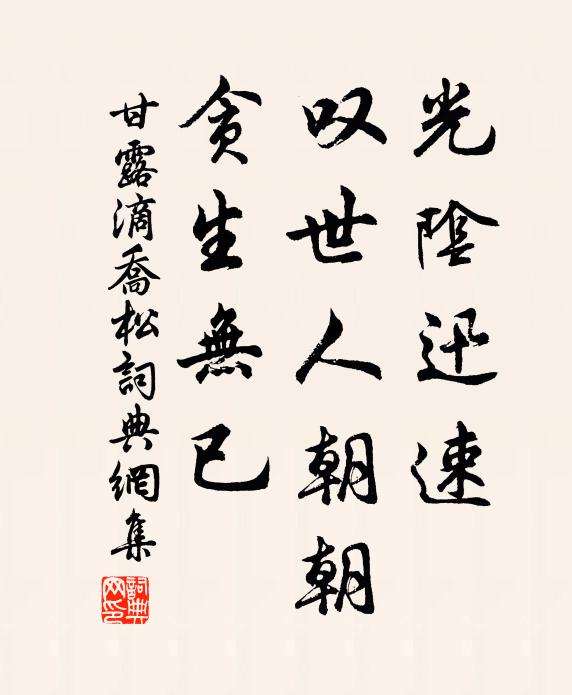 光陰迅速
叹世人朝朝
貪生無已
甘露滴喬松詞典網集
詞典
网印